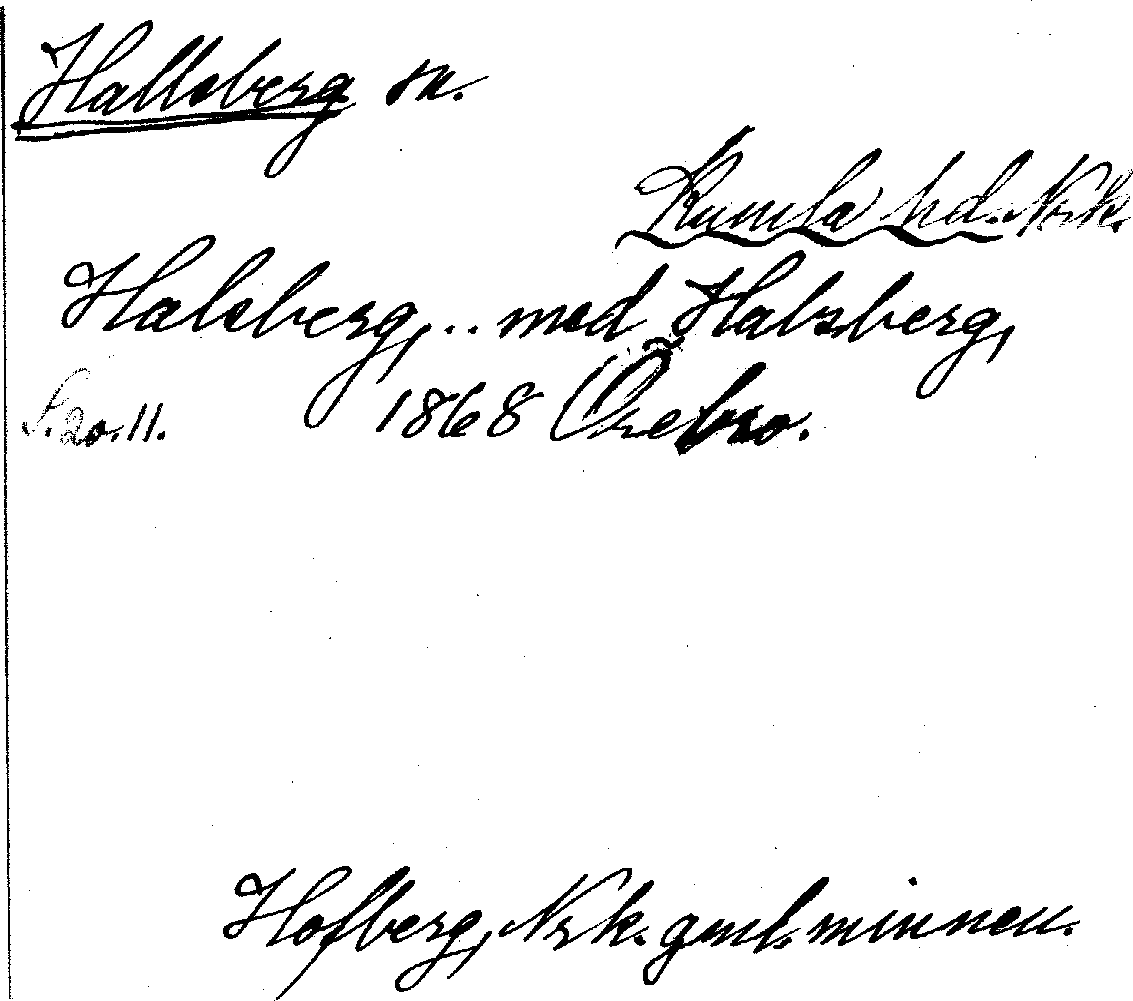 Hallsberg sn.
Kumla hd. Nrk.
Halsberg, .. med Halsberg,
S. 20. 11. 1868 Örebro.
Hofberg, Nrk. gml. minnen.